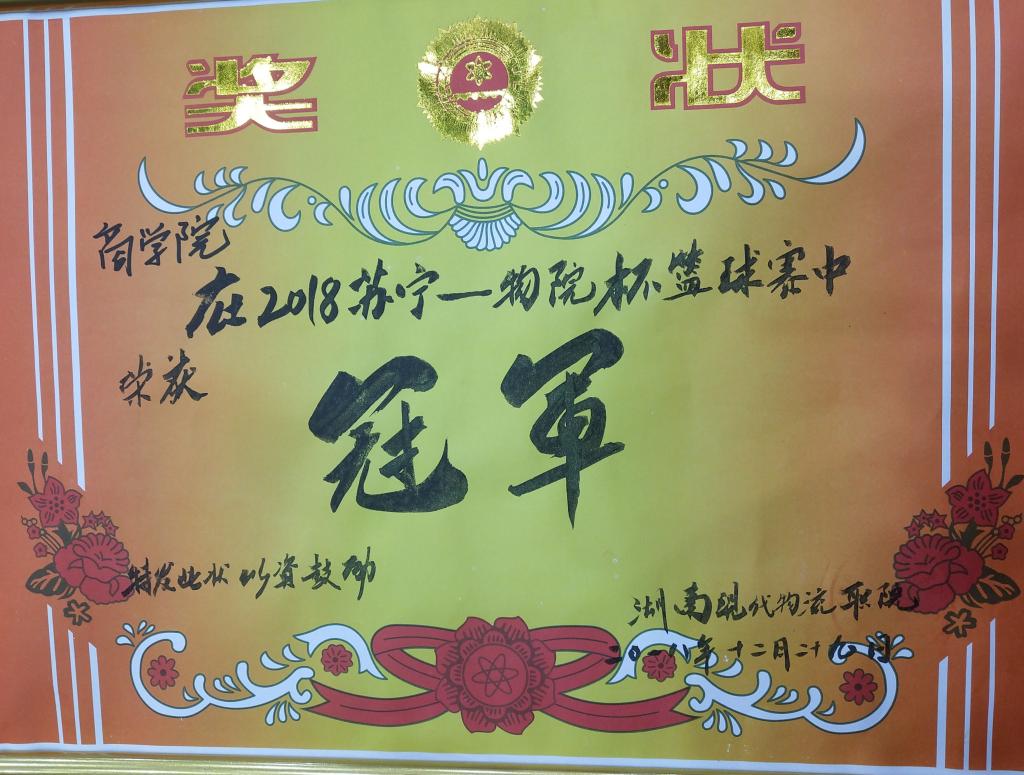 奖 状
商学院
在2018苏宁—物院杯篮球赛中
荣获
冠軍
特发此状 以资鼓励
湖南现代物流职院
二〇一八年十二月二十九日